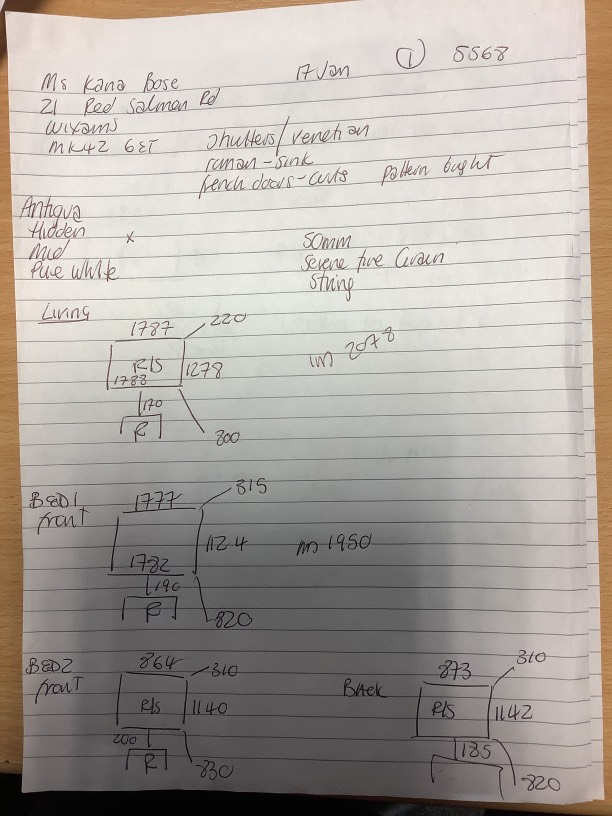 17 Jan ① 5568
Ms Kana Bose
21 Red Salmon Rd
Wixams
MK42 6ET
Shutters/venetian
roman-sink
french doors-curts pattern bught
Antigua
Hidden x
Mid
Pure White
50mm
Serene fine Grain
String
Living
1787 220
R/S 1278
1788
im 2078
170
R
800
BED1
front
1777 815
1124
1782
im 1950
190
R
820
BED2
front
864 310
R/S 1140
200
R
830
BACK
873 310
R/S 1142
185
820